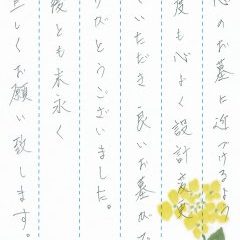 心のお墓に近づけるよう
度も心よく設計変更
いただき良いお墓がで
りがとうございました。
後とも末永く
宜しくお願い致します。